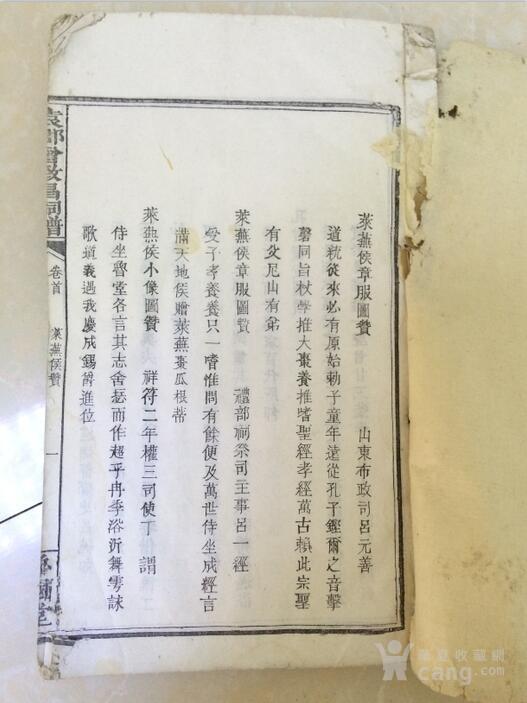 萊蕪侯章服圖贊 山東布政司呂元善
道統從來必有原始勅子童年遠從孔子鏗爾之音擊
磬同旨杖學推大棗養推嗜聖經孝經萬古賴此宗聖
有父尼山有弟
萊蕪侯章服圖贊 禮部祠祭司主事呂一經
受子孝養養只一嗜惟問有餘便及萬世侍坐成經言
滿天地侯贈萊蕪棗瓜根蒂
萊蕪侯小像圖贊 祥符二年權三司使丁謂
侍坐魯堂各言其志舍瑟而作超乎冉季浴沂舞雩詠
歌道義遇我慶成錫爵進位
卷首
萊蕪侯贊
一
華夏收藏網
cang.com